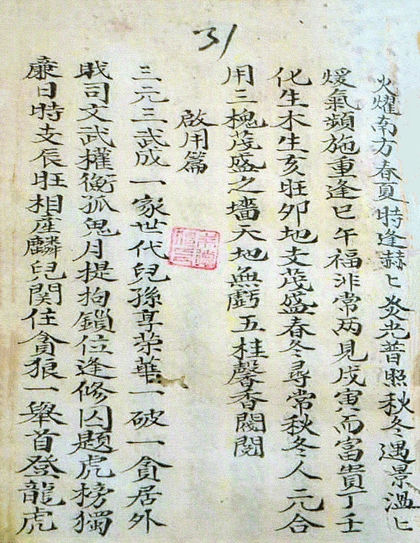 31
火燿南方春夏時逢赫匕炎光普照秋冬遇景溫匕
煖氣頻施重逢巳午福非常两見戌寅而富貴丁壬
化生木生亥旺卯地支茂盛春冬尋常秋冬人元合
用三槐茂盛之墻天地無虧五桂馨香閥閱
啟用篇
三元三武成一家世代兒孫享荣華一破一貪居外
戝司文武權衡孤鬼月提拘鎖位逢修囚題虎榜獨
廉日時支辰旺相産麟兒関住貪狼一舉首登龍虎